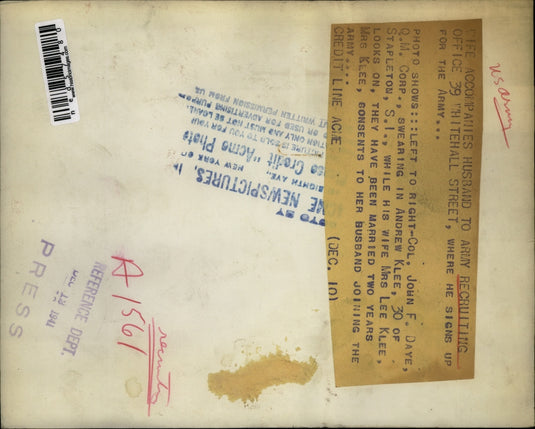 WIFE ACCOMPANIES HUSBAND TO ARMY RECRUITING
OFFICE 39 WHITEHALL STREET, WHERE HE SIGNS UP
FOR THE ARMY...
PHOTO SHOWS:::LEFT TO RIGHT-COL. JOHN F. DAYE,
Q.M. CORP., SWEARING IN ANDREW KLEE, 30 OF
STAPLETON, S.I., WHILE HIS WIFE MRS LEE KLEE,
LOOKS ON, THEY HAVE BEEN MARRIED TWO YEARS
MRS KLEE, SONSENTS TO HER BUSBAND JOINING THE
ARMY....
CREDIT LINE ACME (DEC. 10)
US army
NEWSPICTURES,
EIGHTH AVE., NEW YORK
Credit "Acme Photo
PICTURE IS SOLD TO YOU FOR YOUR
ONLY AND MUST NOT BE LOANED
OR USED FOR ADVERTISING PURPOSES
WRITTEN PERMISSION FROM US
A1561
recruits
REFERENCE DEPT.
1941
PRESS